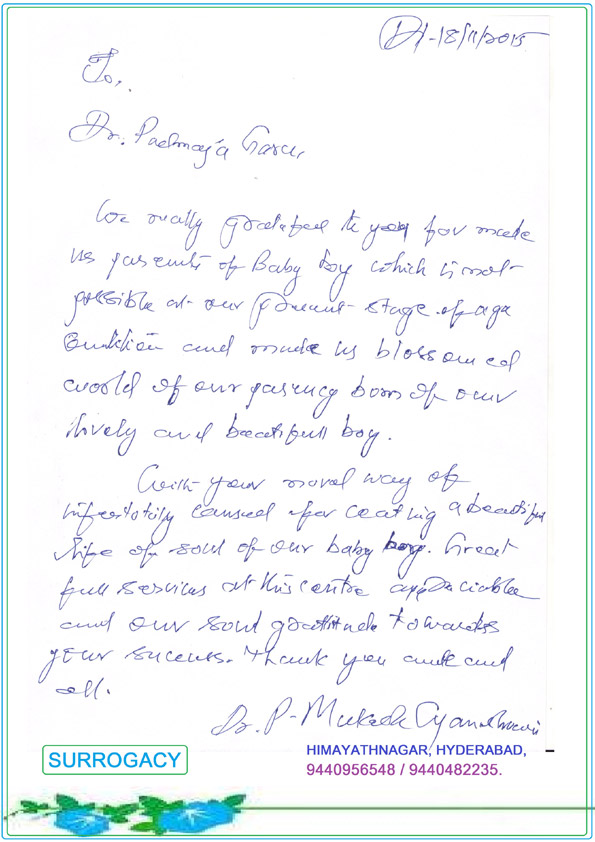 Dt-18/11/2015
To,
Dr. Padmaja Garu,
We really gratefull to you for made
us parents of Baby boy which is not
possible at our present stage of age
and made us blossomed
world of our born of our
lively and beautifull boy.
With your moral way of
infertility for a beautiful
life of soul of our baby boy. Great
full services at this centre
and our soul gratitude towards
your success. Thank you and
all.
Dr. P. Mukesh
SURROGACY
HIMAYATHNAGAR, HYDERABAD,
9440956548 / 9440482235.